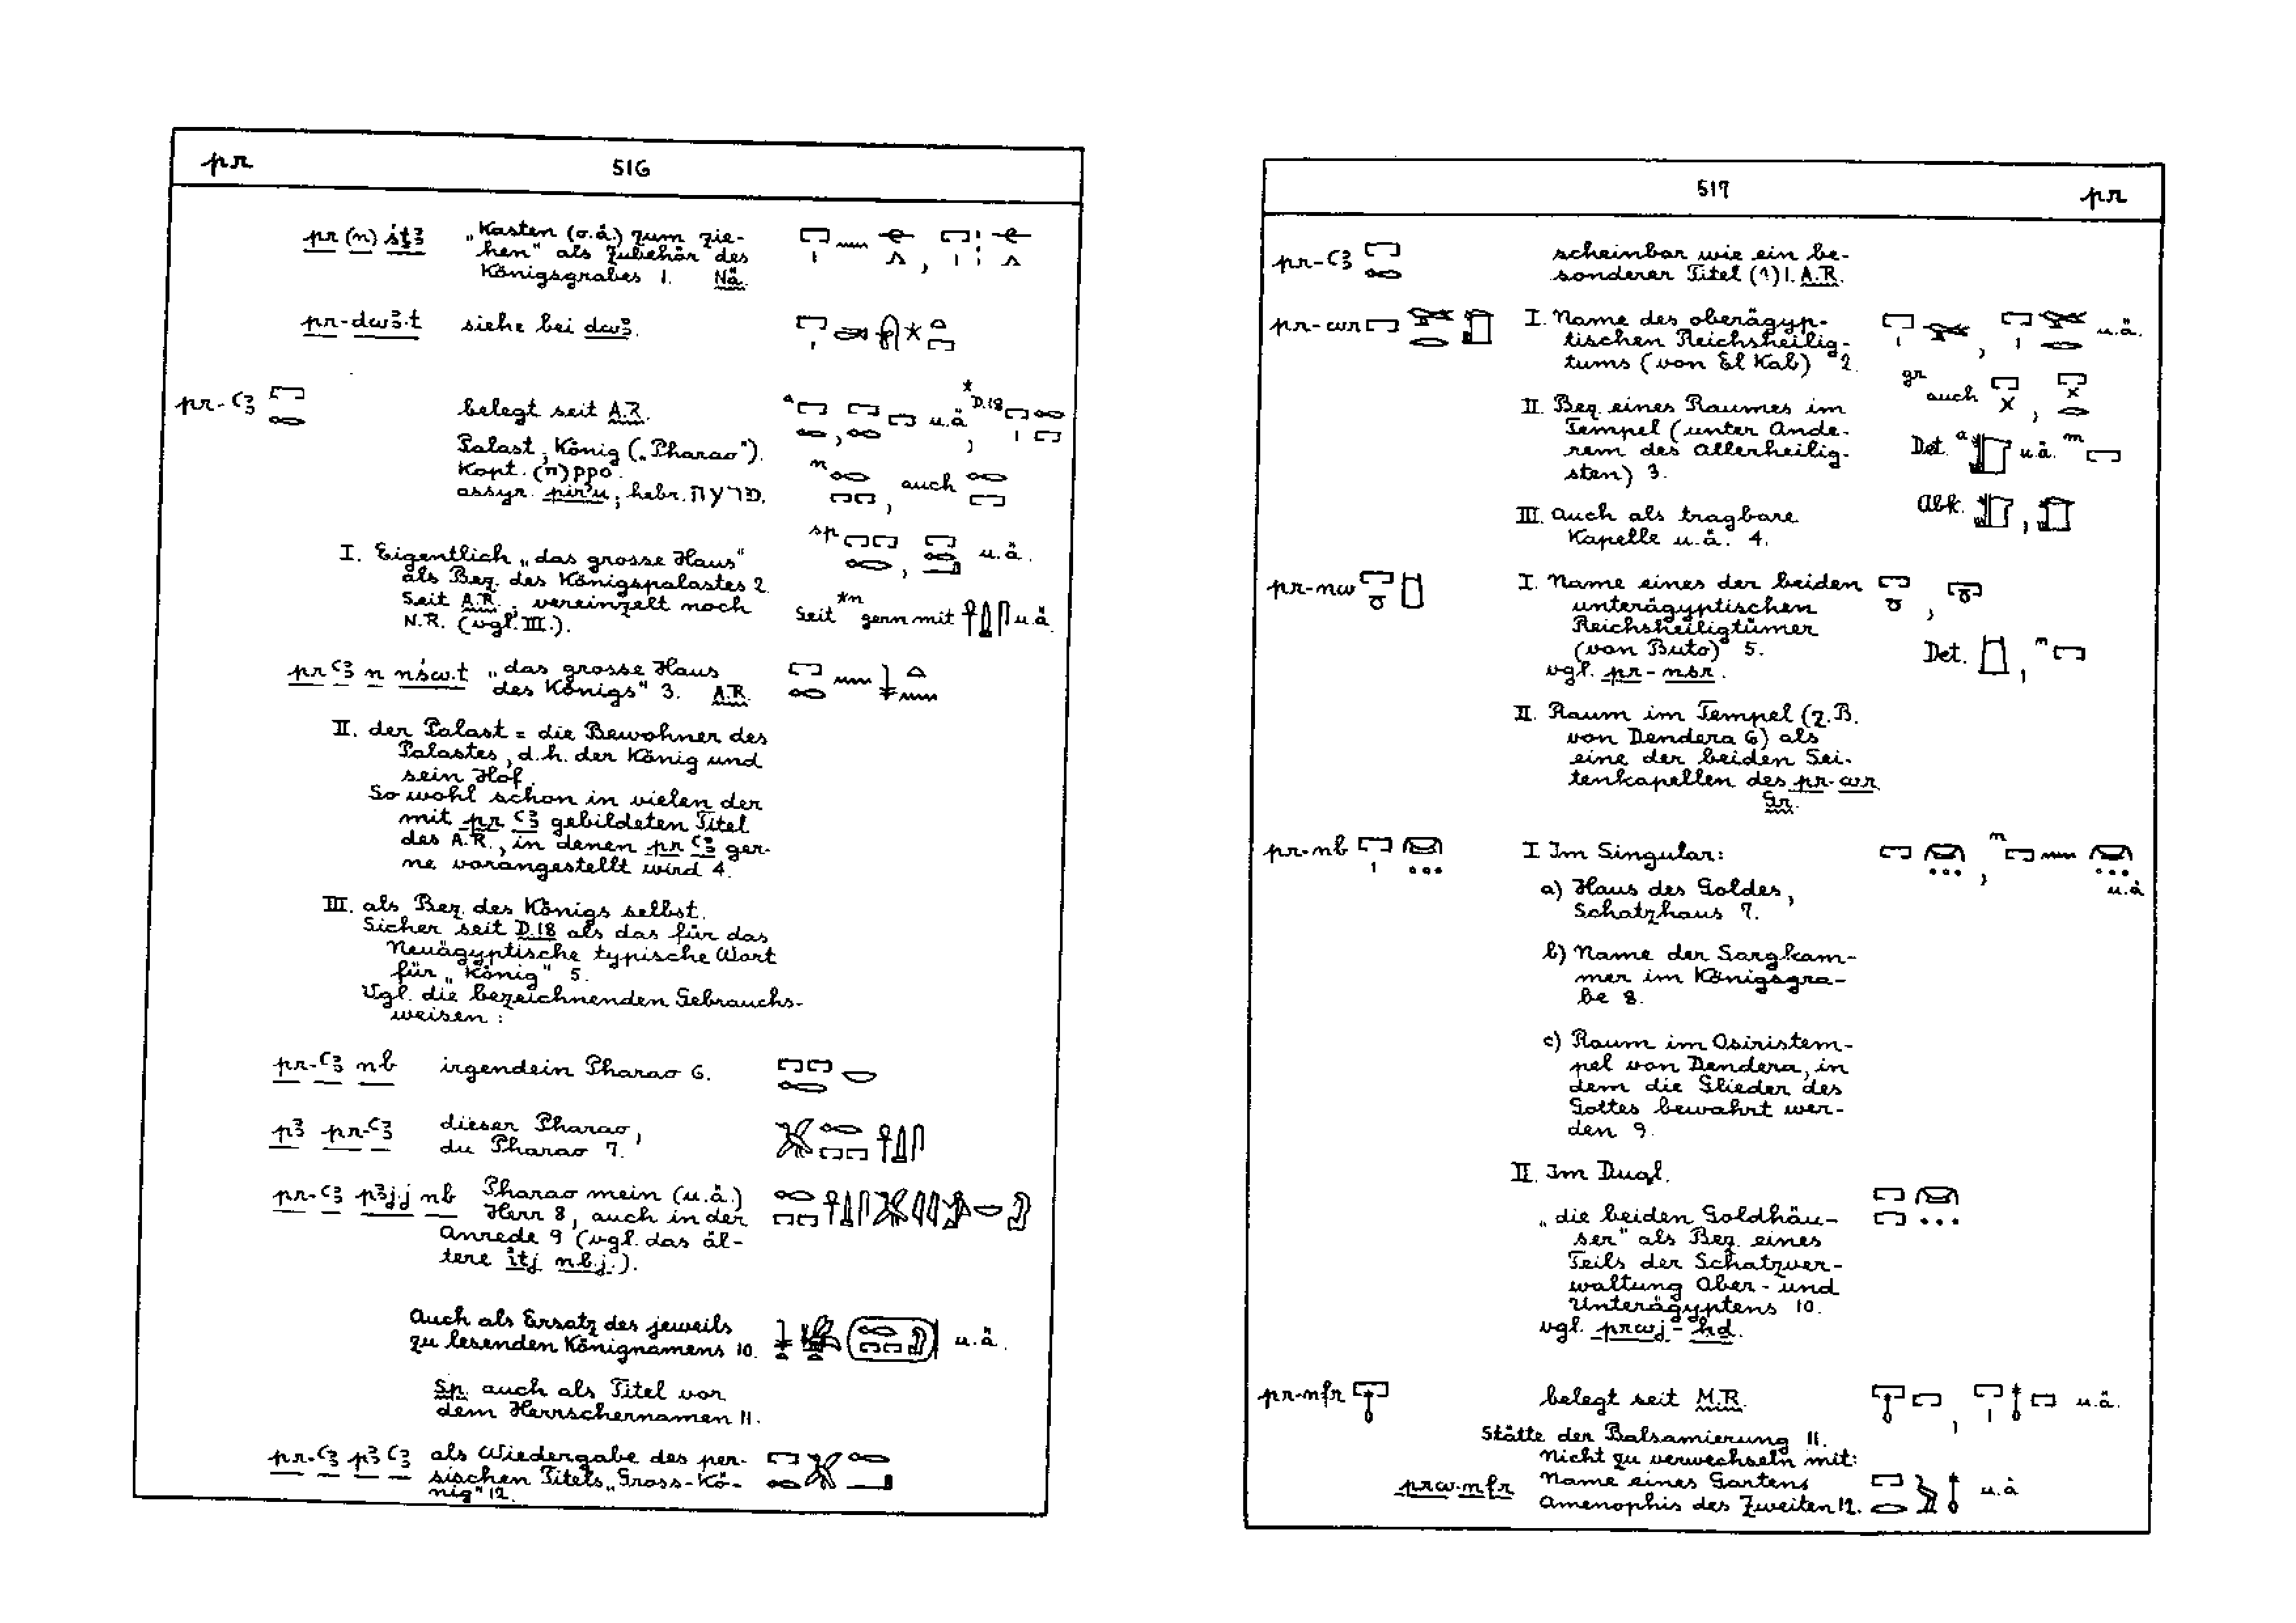 pr
516
pr (n) śṯꜣ „Kasten (o.ä.) zum zie-
hen" als Zubehör des
Königsgrabes 1. Nä.
pr-dwꜣ.t siehe bei dwꜣ.
pr-ꜥꜣ
belegt seit A.R. a u.ä. , * D.18
Palast, König („Pharao").
Kopt. (π)ρρο n , auch
assyr. pirʾu; hebr. פרעה.
sp , u.ä.
I. Eigentlich „das grosse Haus"
als Bez. des Königspalastes 2.
Seit A.R.; vereinzelt noch
N.R. (vgl. III.).
Seit *n gern mit u.ä.
pr ꜥꜣ n nśw.t „das grosse Haus
des Königs" 3. A.R.
II. der Palast = die Bewohner des
Palastes, d.h. der König und
sein Hof.
So wohl schon in vielen der
mit pr ꜥꜣ gebildeten Titel
des A.R., in denen pr ꜥꜣ ger-
ne vorangestellt wird 4.
III. als Bez. des Königs selbst.
Sicher seit D.18 als das für das
Neuägyptische typische Wort
für „König" 5.
Vgl. die bezeichnenden Gebrauchs-
weisen:
pr-ꜥꜣ nb irgendein Pharao 6.
pꜣ pr-ꜥꜣ dieser Pharao,
du Pharao 7.
pr-ꜥꜣ pꜣj.j nb Pharao mein (u.ä.)
Herr 8, auch in der
Anrede 9 (vgl. das äl-
tere ỉtj nb.j.).
Auch als Ersatz des jeweils
zu lesenden Könignamens 10. u.ä.
Sp. auch als Titel vor
dem Herrschernamen 11.
pr-ꜥꜣ pꜣ ꜥꜣ als Wiedergabe des per-
sischen Titels „Gross-Kö-
nig" 12.
517
pr
pr-ꜥꜣ scheinbar wie ein be-
sonderer Titel (?) 1. A.R.
pr-wr I. Name des oberägyp-
tischen Reichsheilig-
tums (von El Kab) 2. , u.ä.
gr auch ,
II. Bez. eines Raumes im
Tempel (unter Ande-
rem des Allerheilig-
sten) 3.
Det. a u.ä. m
III. Auch als tragbare
Kapelle u.ä. 4.
Abk. ,
pr-nw I. Name eines der beiden
unterägyptischen
Reichsheiligtümer
(von Buto) 5.
vgl. pr-nsr.
Det. , m
II. Raum im Tempel (z.B.
von Dendera 6) als
eine der beiden Sei-
tenkapellen des pr-wr.
Gr.
pr-nb I. Im Singular: , m u.ä
a) Haus des Goldes,
Schatzhaus 7.
b) Name der Sargkam-
mer im Königsgra-
be 8.
c) Raum im Osiristem-
pel von Dendera, in
dem die Glieder des
Gottes bewahrt wer-
den 9.
II. Im Dual.
„die beiden Goldhäu-
ser" als Bez. eines
Teils der Schatzver-
waltung Ober- und
Unterägyptens 10.
vgl. prwj-ḥd.
pr-nfr belegt seit M.R. , u.ä.
Stätte der Balsamierung 11.
Nicht zu verwechseln mit:
prw-nfr Name eines Gartens
Amenophis des Zweiten 12. u.ä